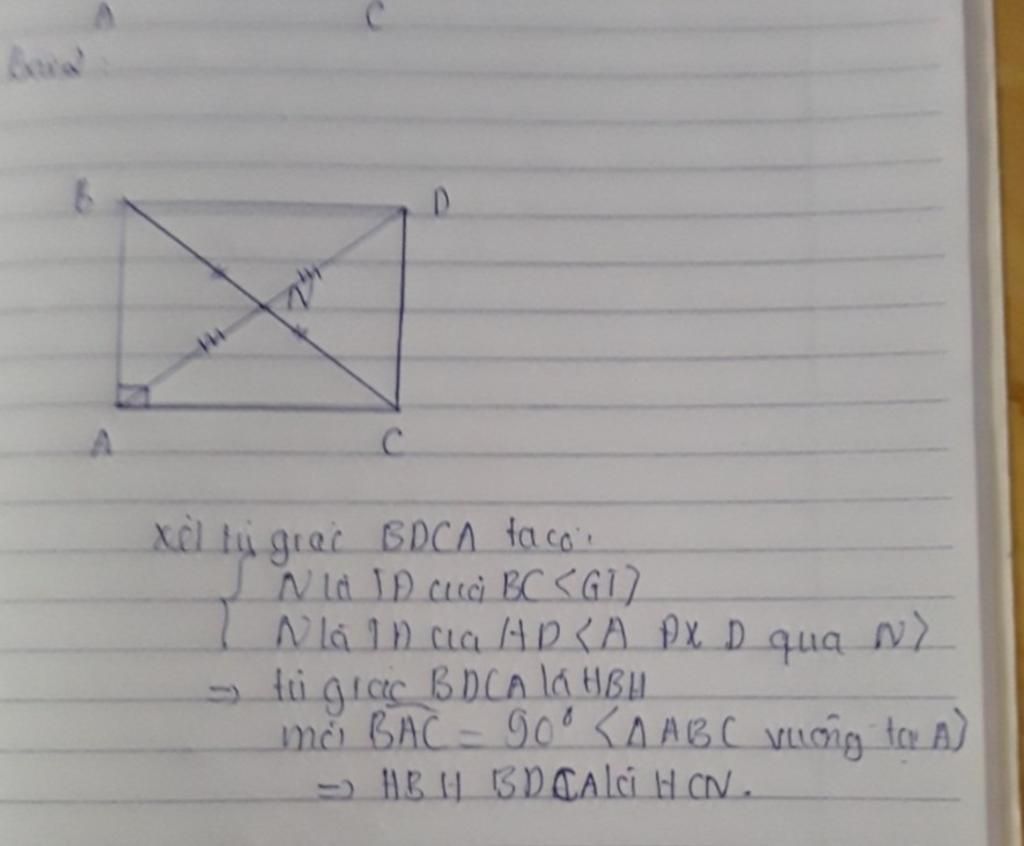 A C
B D
N
A C
Xét tứ giác BDCA ta có:
{ N là TĐ của BC <GT>
N là TĐ của AD <A ĐX D qua N>
=> tứ giác BDCA là HBH
mà BAC = 90° <Δ ABC vuông tại A>
=> HBH BDCA là HCN.